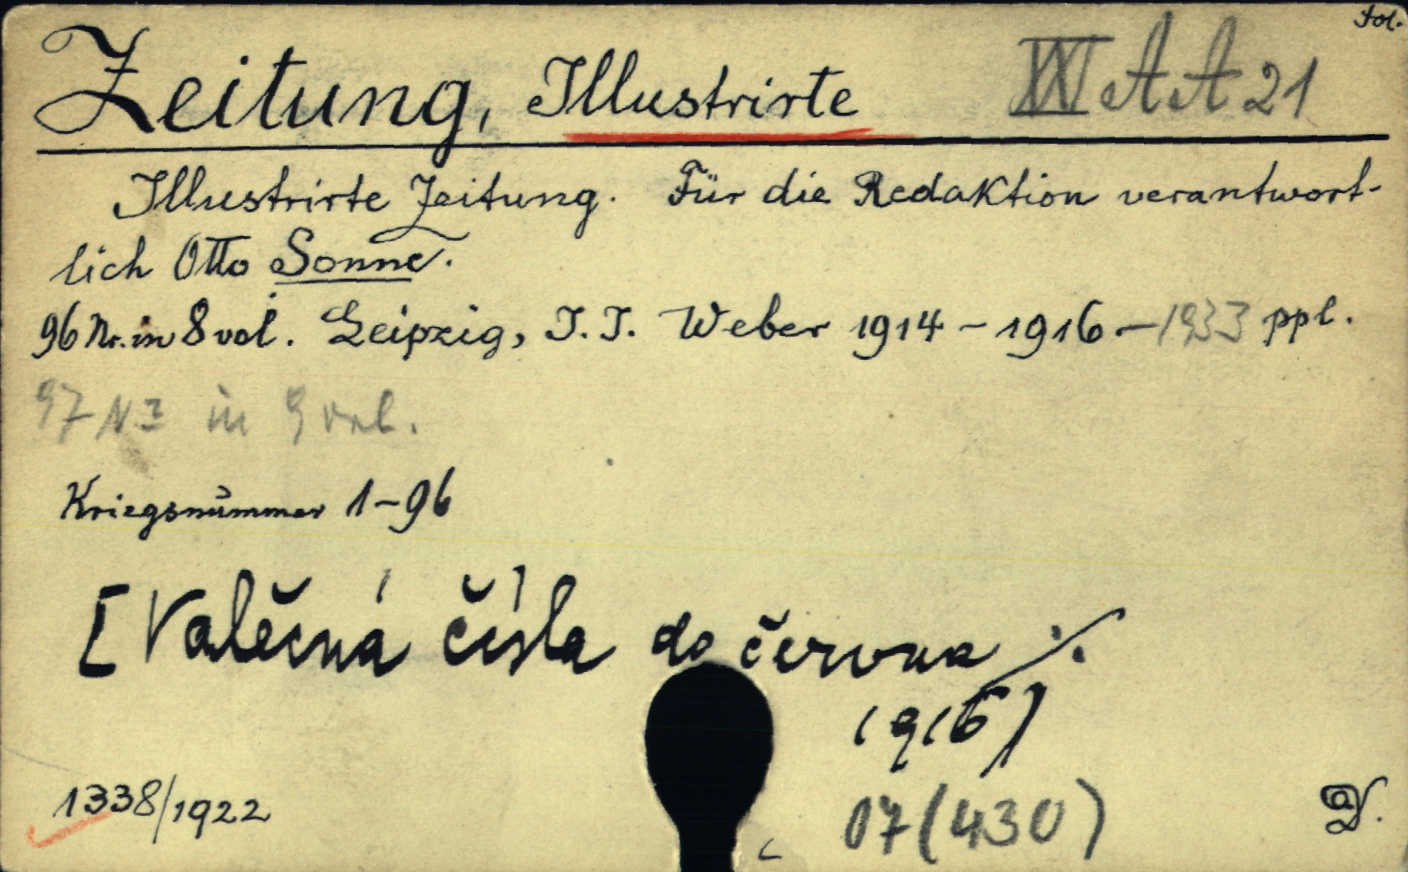 fol.
Zeitung, Illustrirte XX A A 21
Illustrirte Zeitung. Für die Redaktion verantwort-
lich Otto Sonne.
96 Nr. in 8 vol. Leipzig, J. J. Weber 1914 - 1916 - 1933 ppl.
97 Nr in 9 vol.
Kriegsnummer 1-96
[Valečná čísla do června ·/.
1916]
1338/1922
07(430)